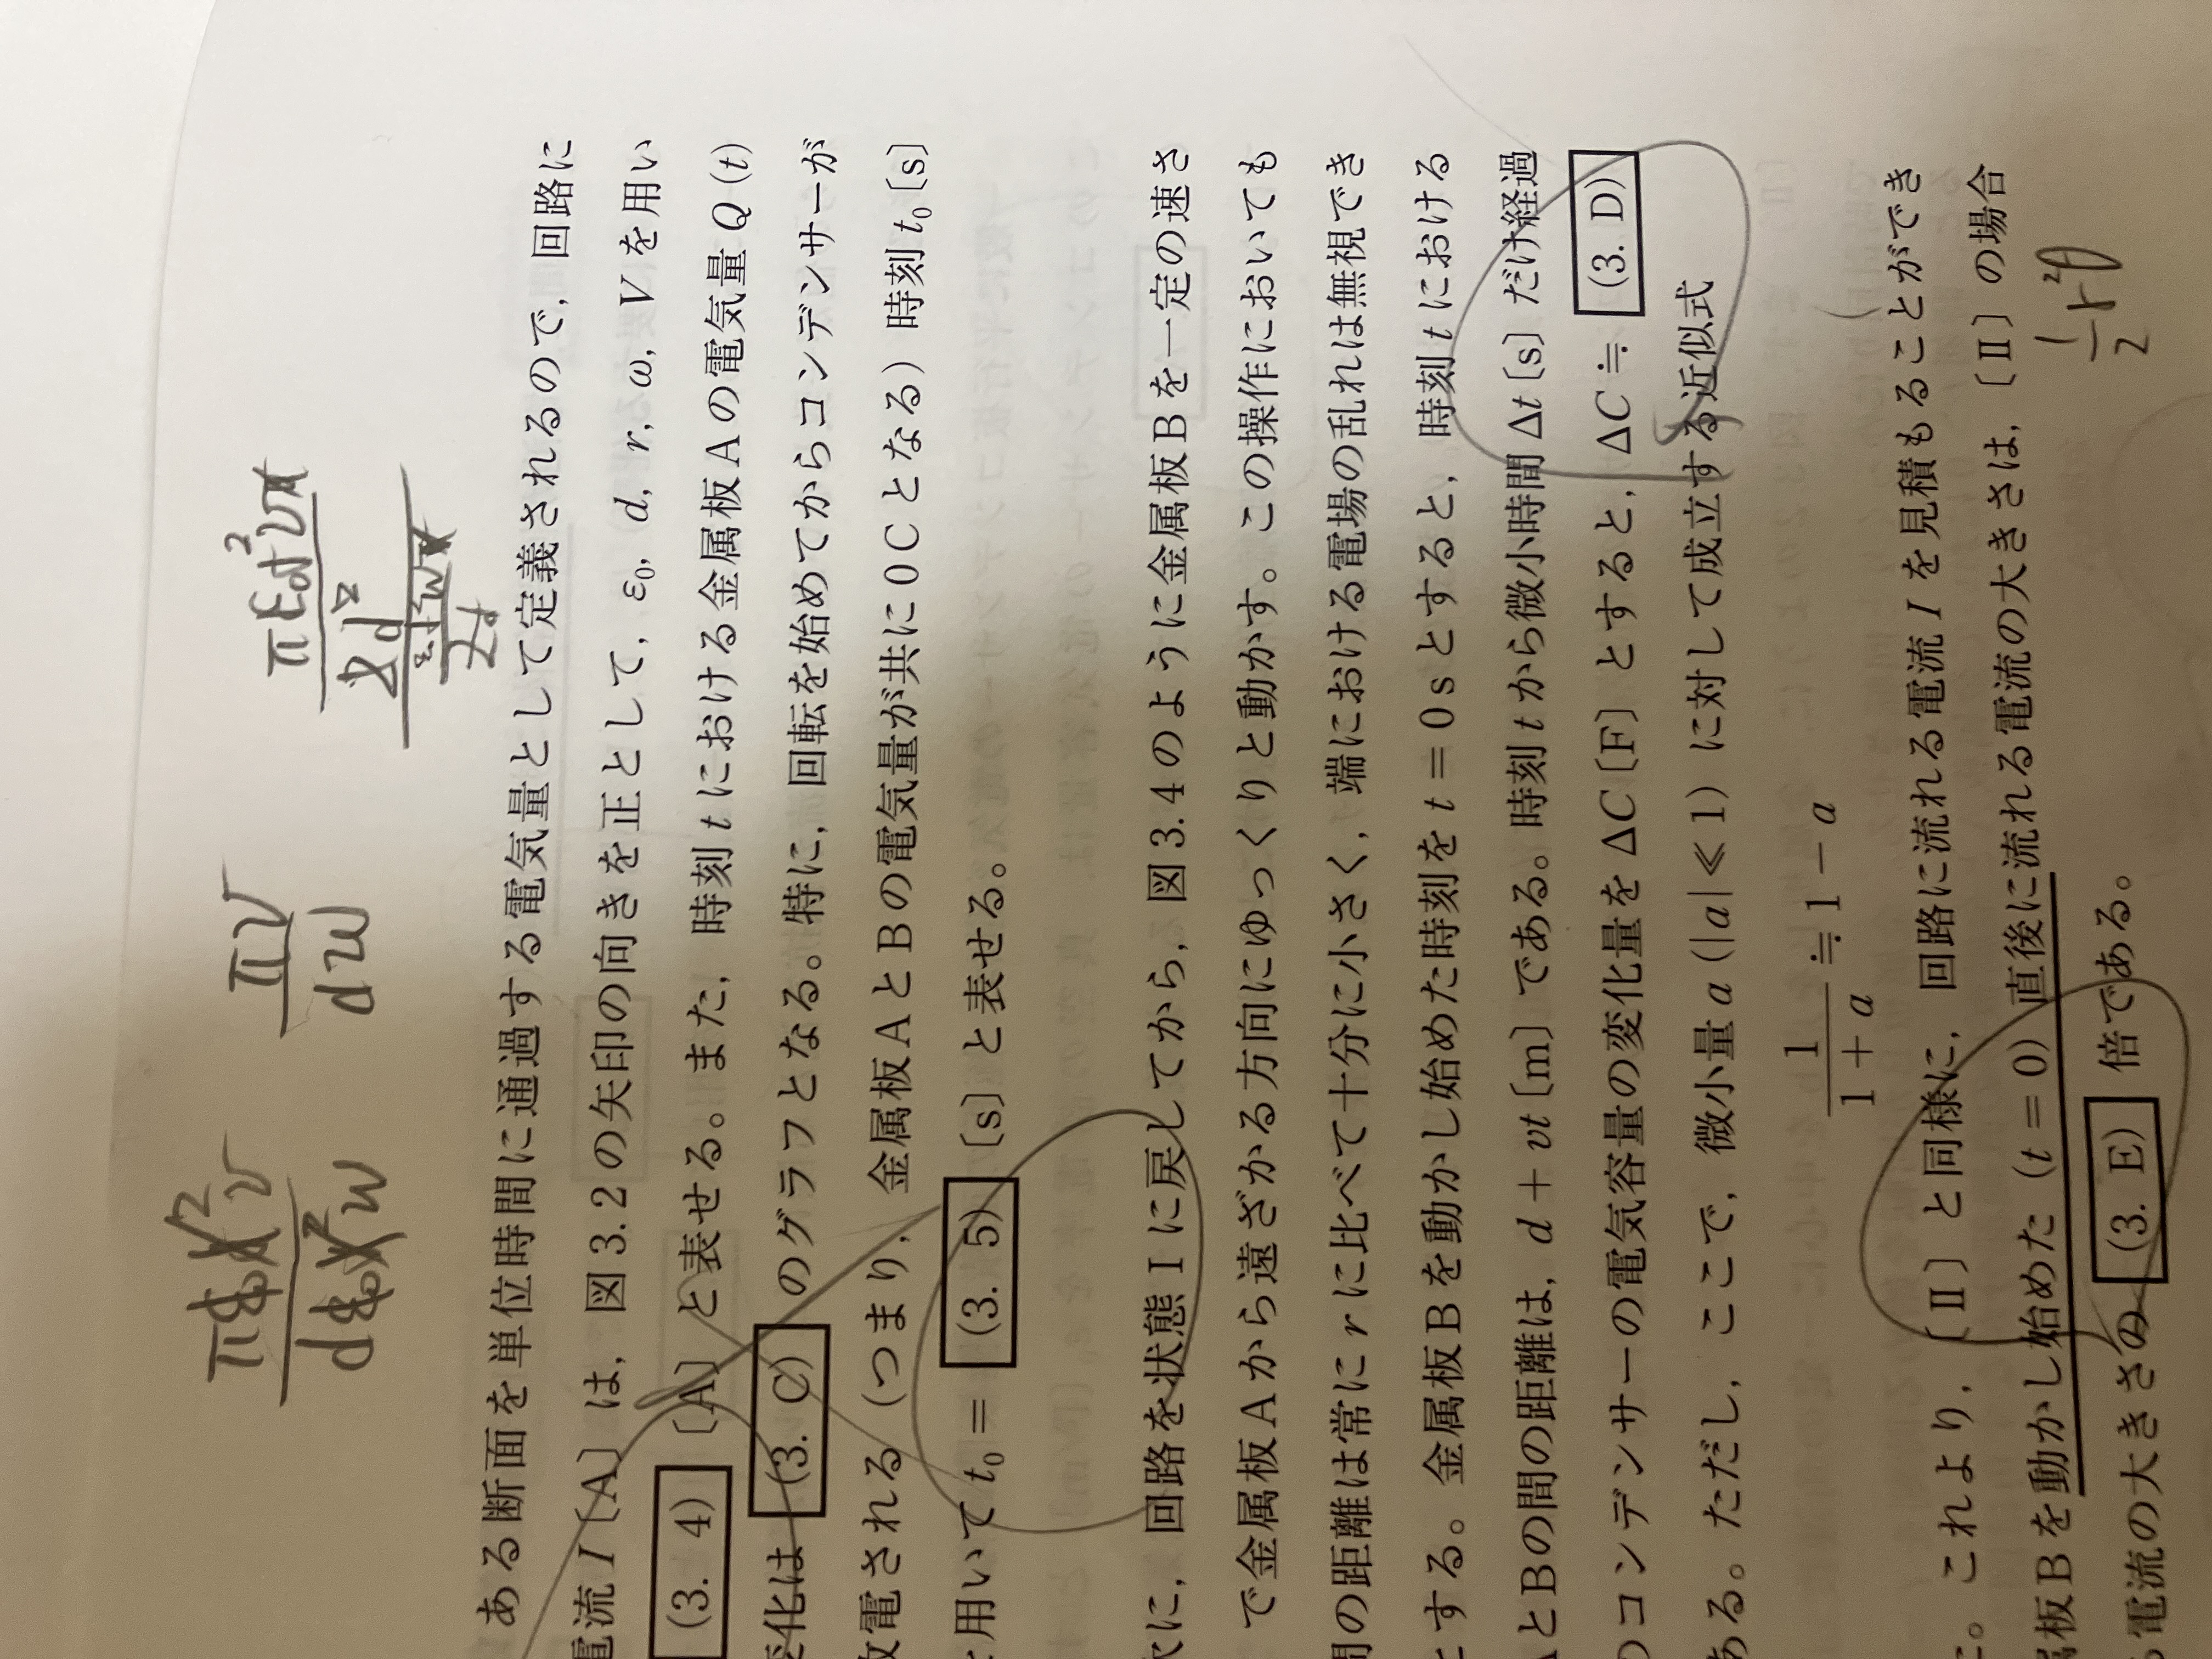 πε₀r²V
dε₀r²ω
πV
dω
ある断面を単位時間に通過する電気量として定義されるので，回路に
電流 I〔A〕は，図3.2の矢印の向きを正として，ε₀, d, r, ω, V を用い
(3. 4) 〔A〕と表せる。また，時刻 t における金属板Aの電気量 Q(t)
変化は (3. C) のグラフとなる。特に，回転を始めてからコンデンサーが
放電される（つまり，金属板AとBの電気量が共に0Cとなる）時刻 t₀〔s〕
を用いて t₀ = (3. 5) 〔s〕と表せる。
次に，回路を状態Iに戻してから，図3.4のように金属板Bを一定の速さ
で金属板Aから遠ざかる方向にゆっくりと動かす。この操作においても
間の距離は常に r に比べて十分に小さく，端における電場の乱れは無視でき
とする。金属板Bを動かし始めた時刻を t = 0 s とすると，時刻 t における
AとBの間の距離は，d + vt〔m〕である。時刻 t から微小時間 Δt〔s〕だけ経過
のコンデンサーの電気容量の変化量を ΔC〔F〕とすると，ΔC ≒ (3. D)
ある。ただし，ここで，微小量 a (|a| ≪ 1) に対して成立する近似式
1/(1 + a) ≒ 1 − a
た。これより，〔Ⅱ〕と同様に，回路に流れる電流 I を見積もることができ
属板Bを動かし始めた (t = 0) 直後に流れる電流の大きさは，〔Ⅱ〕の場合
る電流の大きさの (3. E) 倍である。
1/2 r²θ